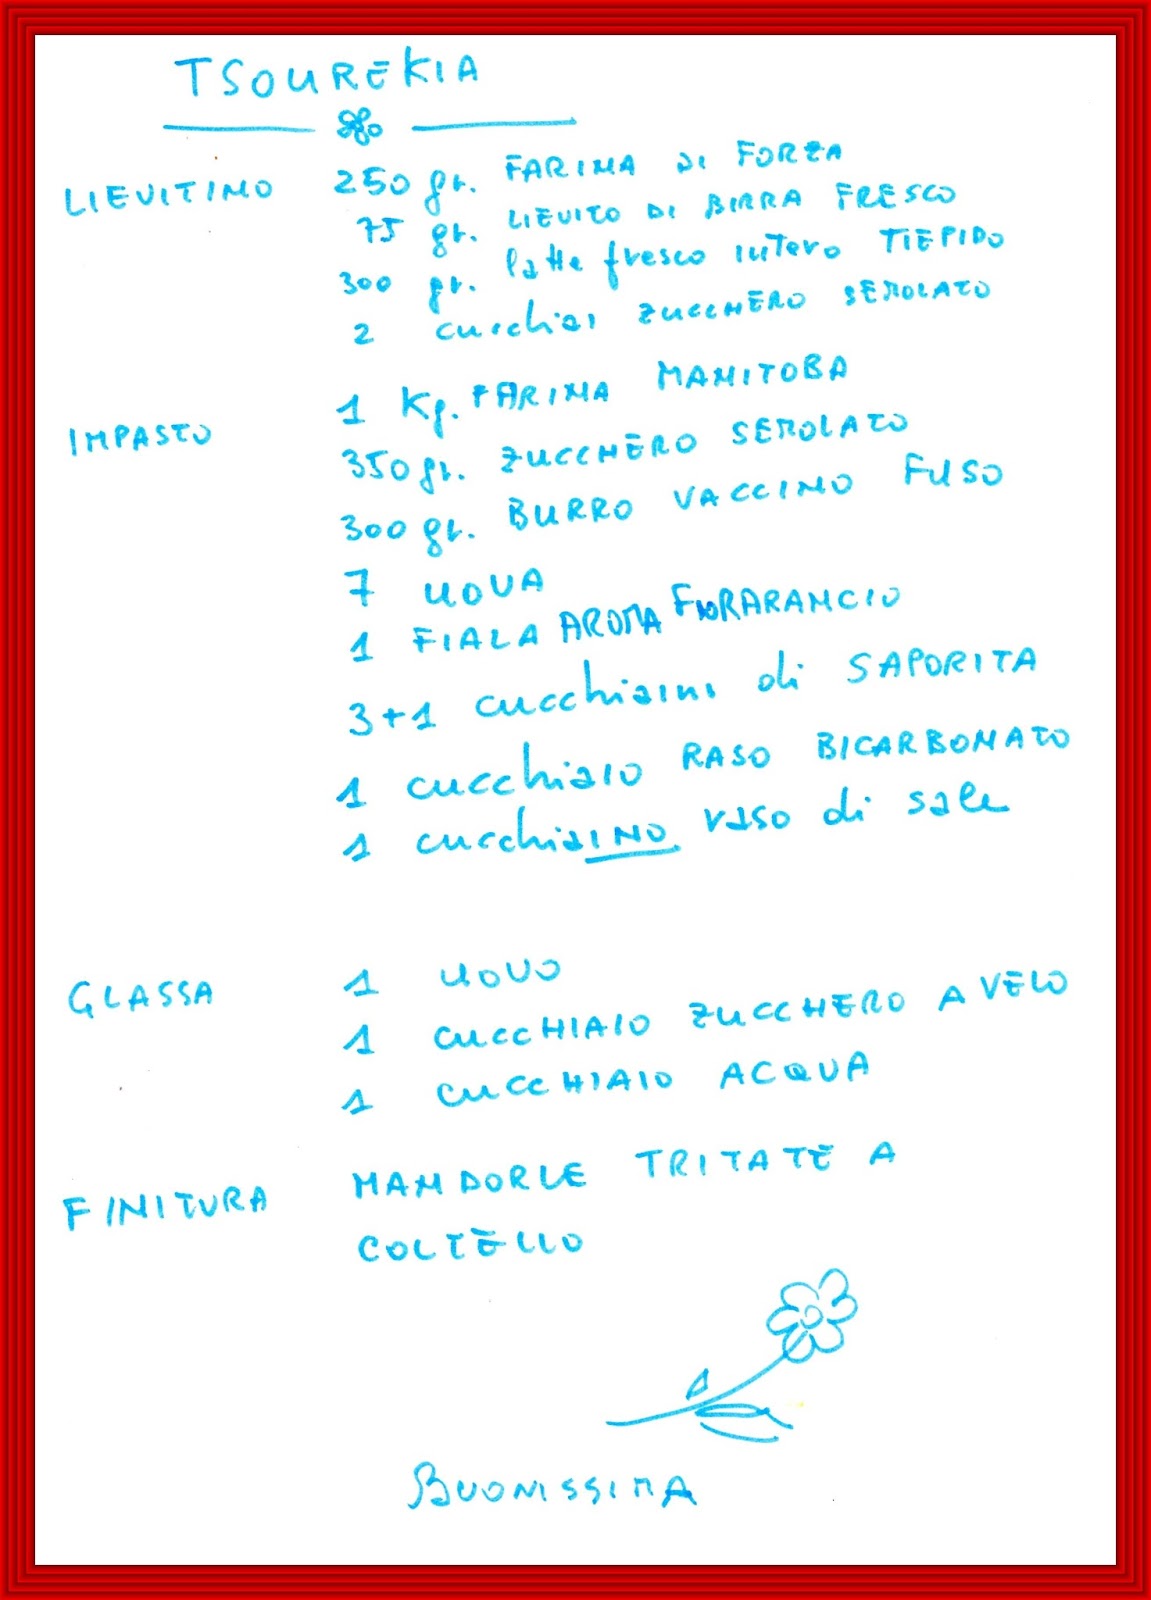 TSOUREKIA
LIEVITINO 250 gr. FARINA DI FORZA
75 gr. LIEVITO DI BIRRA FRESCO
300 gr. latte fresco intero TIEPIDO
2 cucchiai ZUCCHERO SEMOLATO
IMPASTO 1 Kg. FARINA MANITOBA
350 gr. ZUCCHERO SEMOLATO
300 gr. BURRO VACCINO FUSO
7 UOVA
1 FIALA AROMA FIORARANCIO
3+1 cucchiaini di SAPORITA
1 cucchiaio RASO BICARBONATO
1 cucchiaINO raso di sale
GLASSA 1 UOVO
1 CUCCHIAIO ZUCCHERO A VELO
1 CUCCHIAIO ACQUA
FINITURA MANDORLE TRITATE A
COLTELLO
BUONISSIMA